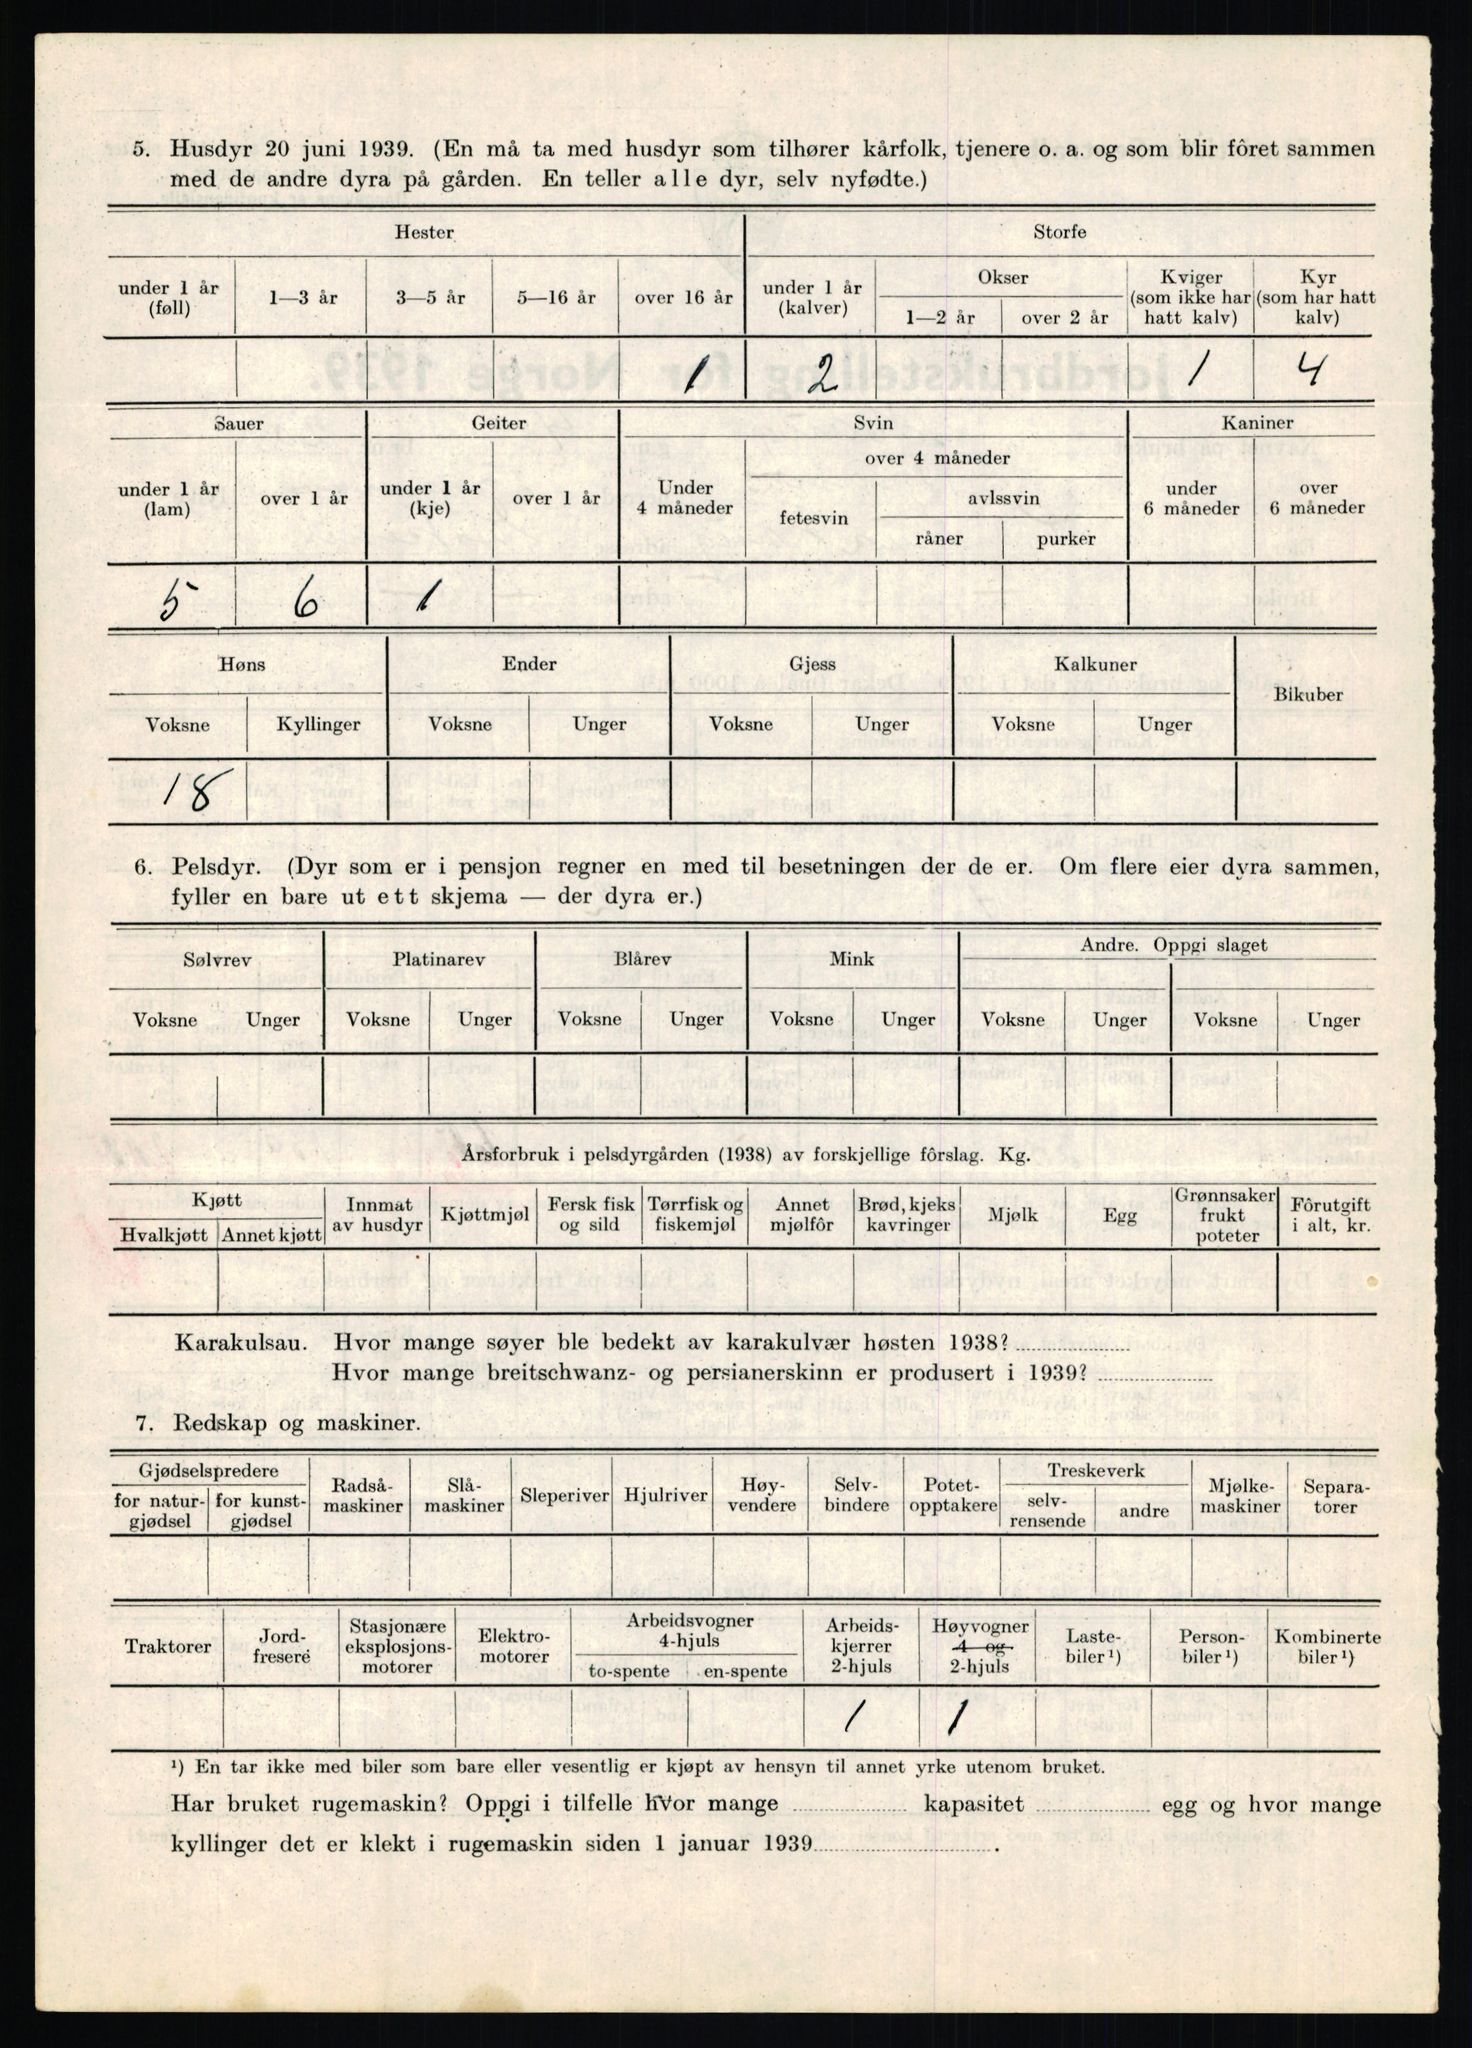 5. Husdyr 20 juni 1939. (En må ta med husdyr som tilhører kårfolk, tjenere o. a. og som blir fôret sammen
med de andre dyra på gården. En teller alle dyr, selv nyfødte.)
Hester Storfe
under 1 år (føll) 1—3 år 3—5 år 5—16 år over 16 år under 1 år (kalver) Okser 1—2 år over 2 år Kviger (som ikke har hatt kalv) Kyr (som har hatt kalv)
1 2 1 4
Sauer Geiter Svin Kaniner
under 1 år (lam) over 1 år under 1 år (kje) over 1 år Under 4 måneder over 4 måneder fetesvin avlssvin råner purker under 6 måneder over 6 måneder
5 6 1
Høns Ender Gjess Kalkuner Bikuber
Voksne Kyllinger Voksne Unger Voksne Unger Voksne Unger
18
6. Pelsdyr. (Dyr som er i pensjon regner en med til besetningen der de er. Om flere eier dyra sammen,
fyller en bare ut ett skjema — der dyra er.)
Sølvrev Platinarev Blårev Mink Andre. Oppgi slaget
Voksne Unger Voksne Unger Voksne Unger Voksne Unger Voksne Unger Voksne Unger
Årsforbruk i pelsdyrgården (1938) av forskjellige fôrslag. Kg.
Kjøtt Hvalkjøtt Annet kjøtt Innmat av husdyr Kjøttmjøl Fersk fisk og sild Tørrfisk og fiskemjøl Annet mjølfôr Brød, kjeks kavringer Mjølk Egg Grønnsaker frukt poteter Fôrutgift i alt, kr.
Karakulsau. Hvor mange søyer ble bedekt av karakulvær høsten 1938?
Hvor mange breitschwanz- og persianerskinn er produsert i 1939?
7. Redskap og maskiner.
Gjødselspredere for natur-gjødsel for kunst-gjødsel Radså-maskiner Slå-maskiner Sleperiver Hjulriver Høy-vendere Selv-bindere Potet-opptakere Treskeverk selv-rensende andre Mjølke-maskiner Separa-torer
Traktorer Jord-fresere Stasjonære eksplosjons-motorer Elektro-motorer Arbeidsvogner 4-hjuls to-spente en-spente Arbeids-kjerrer 2-hjuls Høyvogner 4 og 2-hjuls Laste-biler¹) Person-biler¹) Kombinerte biler¹)
1 1
¹) En tar ikke med biler som bare eller vesentlig er kjøpt av hensyn til annet yrke utenom bruket.
Har bruket rugemaskin? Oppgi i tilfelle hvor mange kapasitet egg og hvor mange
kyllinger det er klekt i rugemaskin siden 1 januar 1939 .